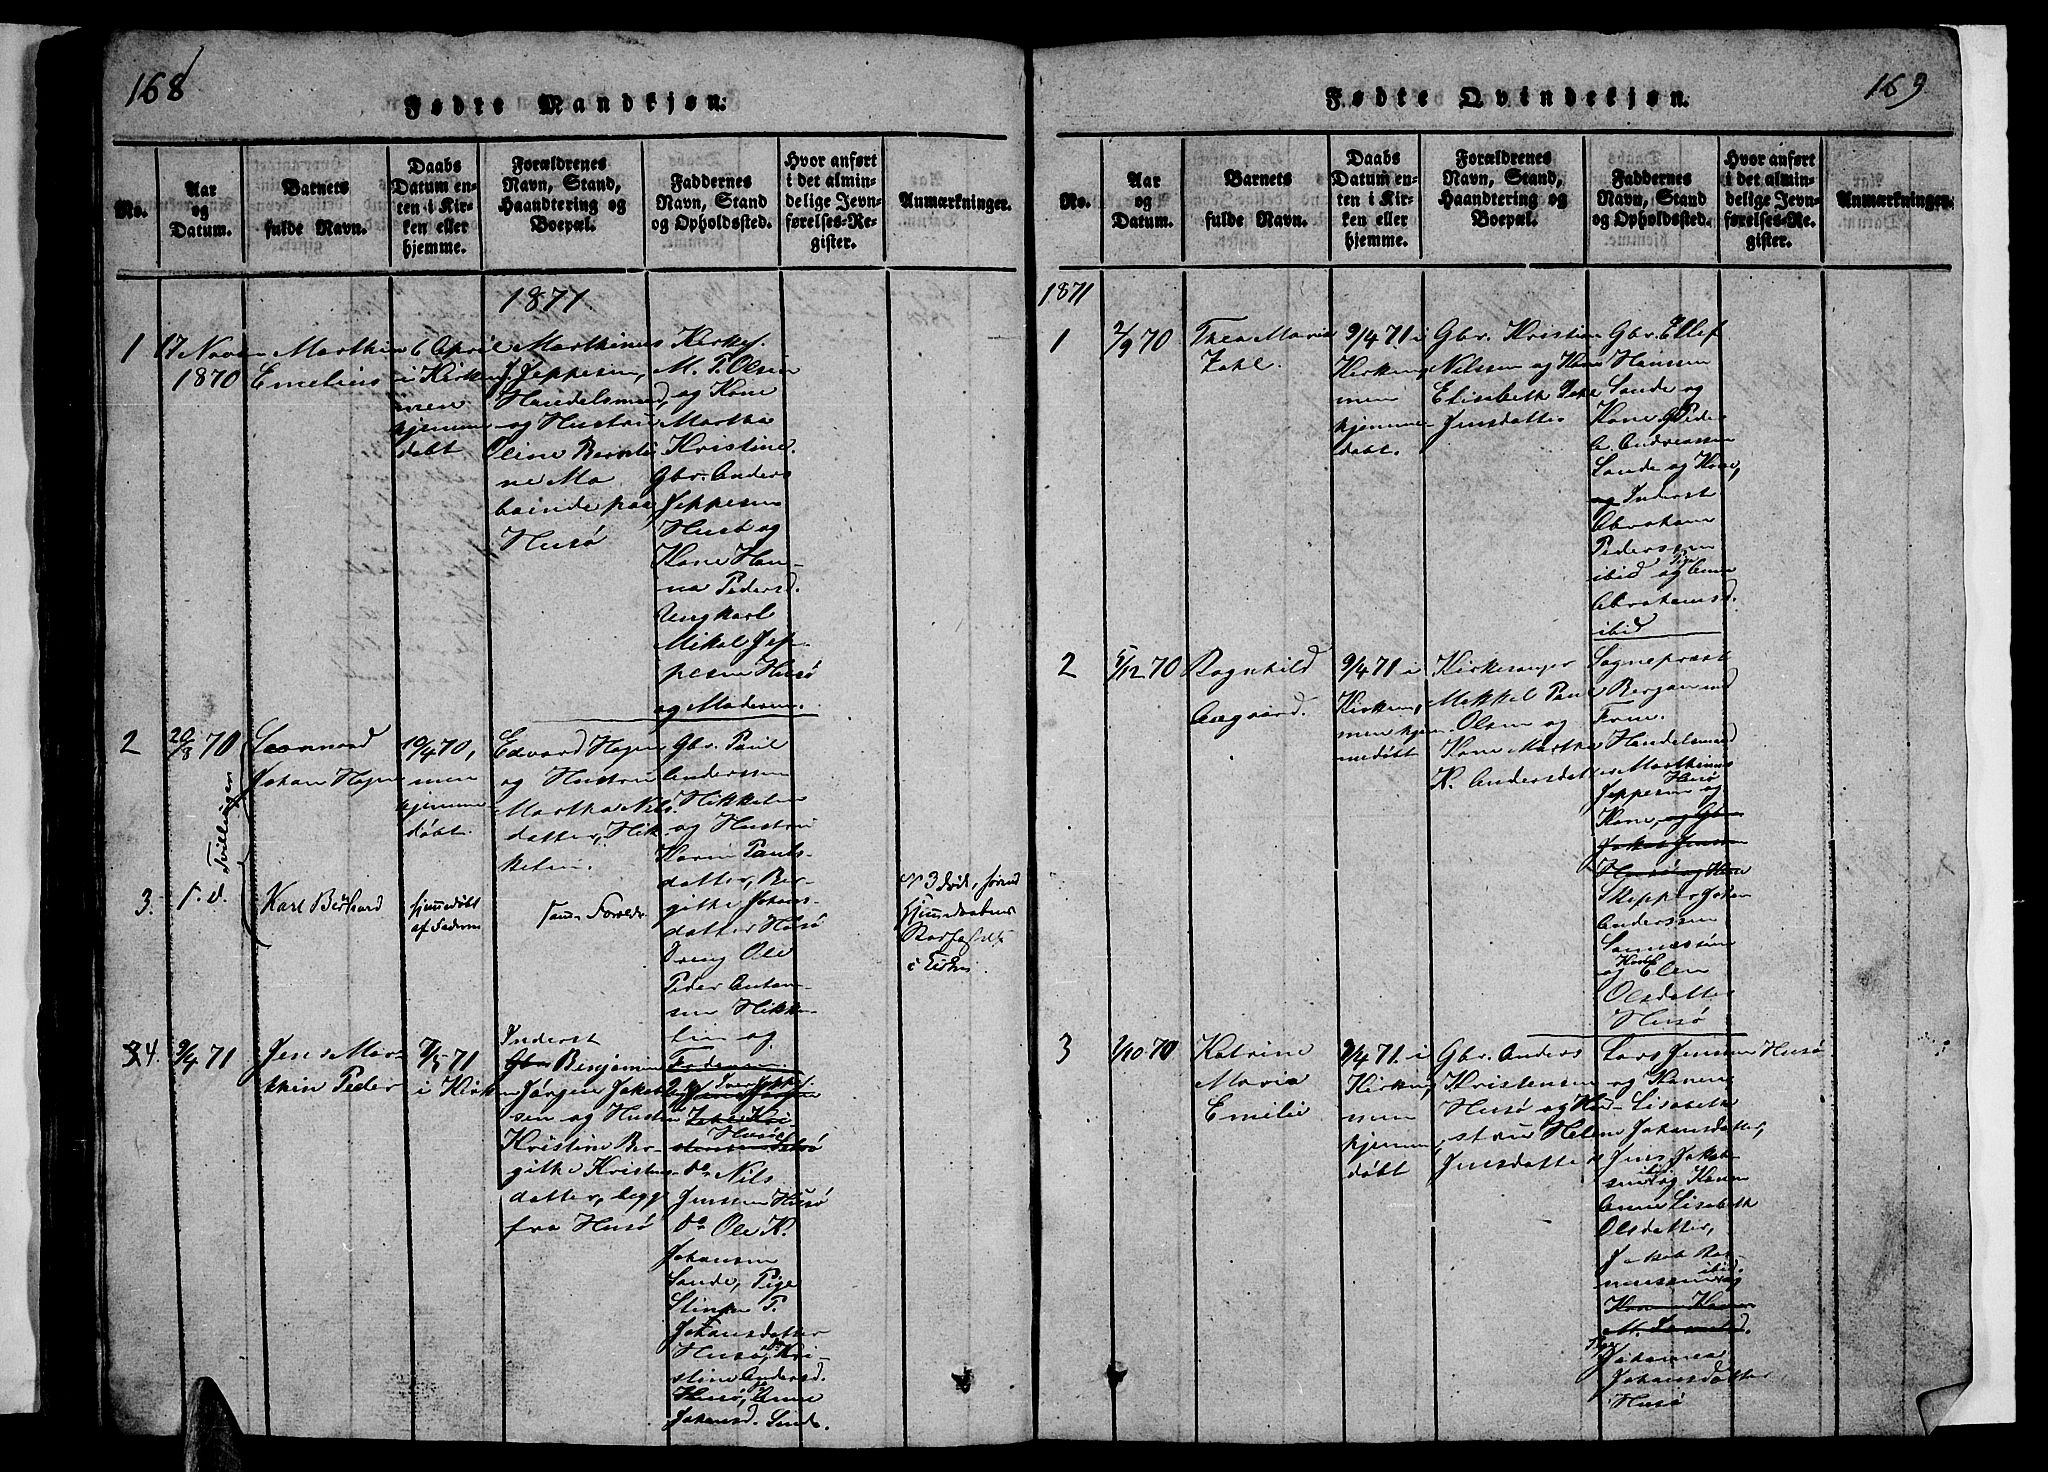 168
Fødte Mandkjøn.
No.
Aar
og
Datum.
Barnets
fulde Navn.
Daabs
Datum en-
ten i Kir-
ken eller
hjemme.
Forældrenes
Navn, Stand,
Haandtering og
Boepæl.
Faddernes
Navn, Stand
og Opholdssted.
Hvor anført
i det almin-
delige Jevn-
førelses-Re-
gister.
Anmærkninger.
1871
1
17 Novem
1870
Marthin
Emelius
6 April
i Kirken,
men
hjemme
døbt
Marthinus
J. Jeppesen,
Handelsmand,
og Hustru
Oline
ne Ma
boende paa
Husö
Kirkes.
M. P. Olsen
og Kone
Martha
Kristine.
Gbr. Anders
Jeppesen
Husö og
Kone Han-
na Pedersd.
Ungkarl
Mikal Jep-
pesen Husö
og Moderen.
2
20/8 70
Tvillinger
Leonnard
Johan
10/4 70,
men
hjemme-
døbt.
Edvard
og Hustru
Martha Nils-
datter, Hik-
kelen.
Gbr. Paul
Anderssen
Hikkelen
og Hustru
Karen Pauls-
datter, Ber-
githe Johans-
datter Husö
Dreng Ole
Peder Anton-
sen Hikke-
len og
Faderen
3.
s. d.
Karl Bernhard
hjemmedøbt
af Faderen
samme Forældre
№ 3 død, førend
Hjemmedaaben
i Kirken.
4.
9/4 71
Jens Mar-
thin Peder
7/5 71
i Kirken
Inderst
Gbr. Benjamin
Jørgen Jakob-
sen og Hustru
Kristine Ber-
githe Kristens-
datter, begge
fra Husö
Husö
do Nils
Jenssen Husö
do Ole K.
Johansen
Sande, Pige
Stinke P.
Johansdatter
Husö, Kri-
stine Andersd.
Husö, Anne
Johansd. Sande
169
Fødte Qvindekjøn.
No.
Aar
og
Datum.
Barnets
fulde Navn.
Daabs
Datum en-
ten i Kir-
ken eller
hjemme.
Forældrenes
Navn, Stand,
Haandtering og
Boepæl.
Faddernes
Navn, Stand
og Opholdssted.
Hvor anført
i det almin-
delige Jevn-
førelses-Re-
gister.
Anmærkninger.
1871
1
2/9 70
Thea Maria
Zahl.
9/4 71 i
Kirken,
men
hjemme-
døbt.
Gbr. Kristian
Nilssen og Kone
Elisabeth
Jensdatter
Gbr. Ellef
Hansen
Sande og
Kone, Gbr Peder
A. Andreassen
Sande og Kone,
og Inderst
Abraham
Pederssen
ibid og Pige Anne
Abrahamsd.
ibid
2
5/12 70
Ragnhild
Aagaard.
9/4 71 i
Kirken,
men hjem-
medøbt
Kirkesanger
Mekkel Paul
Olsen og
Kone Martha
K. Andersdatter
Sogneprest
Benjamin
Frue.
Handelsmand
Marthinus
Jeppesen Husö og
Kone, og Gbr
Jakob Jenssen
Husö og Kone
Skipper Johan
Anderssen
og Elen
Olsdatter
Husö
3
1/10 70
Katrine
Maria
Emilie
9/4 71 i
Kirken,
men
hjemme
døbt
Gbr. Anders
Kristensen
Husö og Hu-
stru Helene
Jensdatter
Lars Jenssen Husö
og Konen
Lisabeth
Johansdatter,
Jens Jakob-
sen ibid og Konen
Anne Lisabeth
Olsdatter,
Jakob Ras-
mussen ibid. og
Kone
Pige
Johanna
Johansdatter
Husö